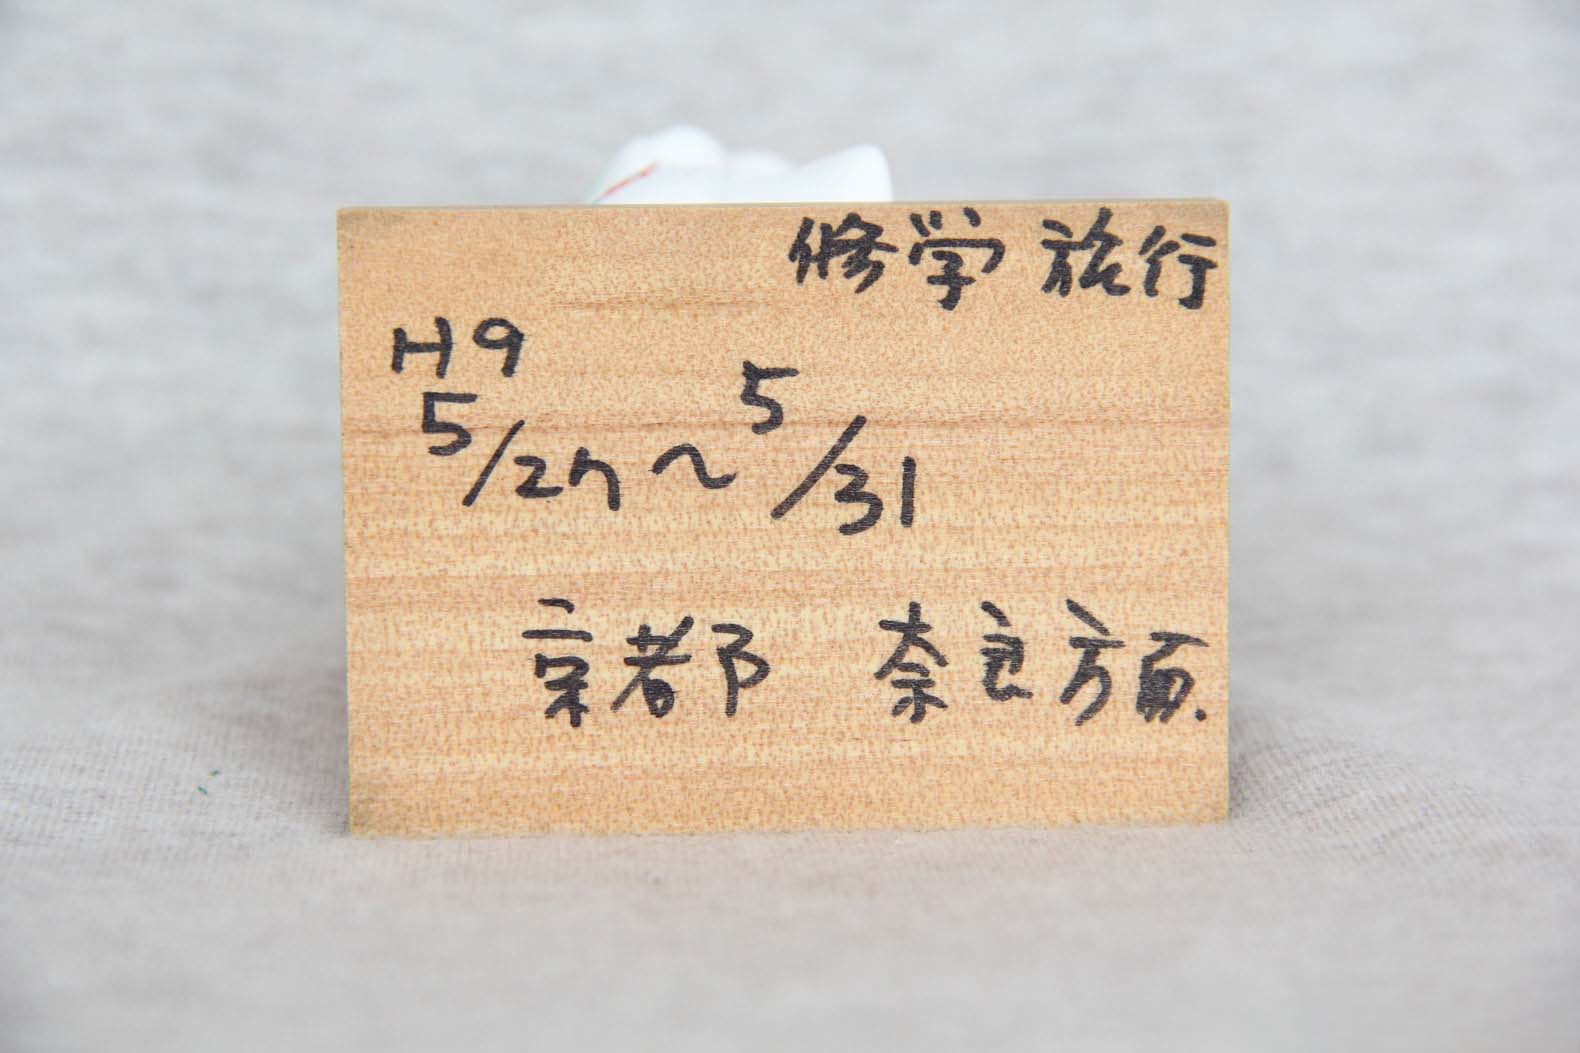 修学旅行
H9
5/27～5/31
京都 奈良方面